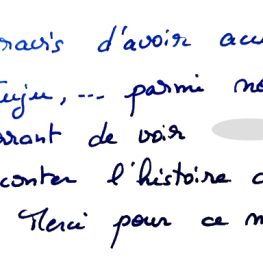 ravis d'avoir acc
Tuju, ... parmi no
rrant de voir
conter l'histoire d
Merci pour ce m